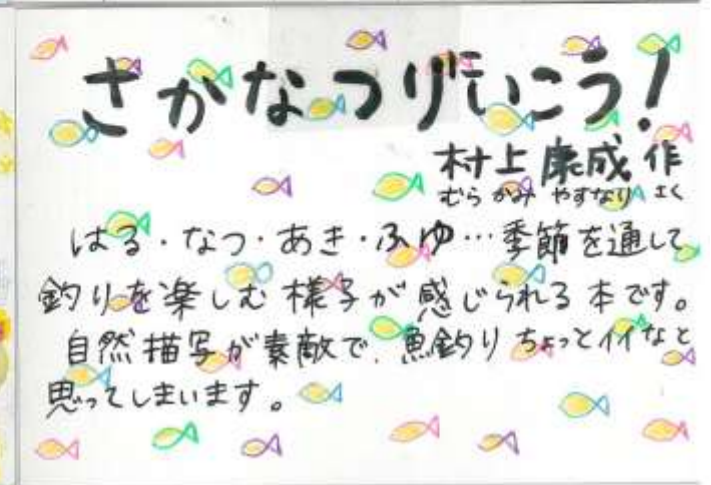 さかなつりにいこう!
村上 康成 作
むら かみ やすなり さく
はる・なつ・あき・ふゆ…季節を通して
釣りを楽しむ様子が感じられる本です。
自然描写が素敵で、魚釣りちょっとイイなと
思ってしまいます。